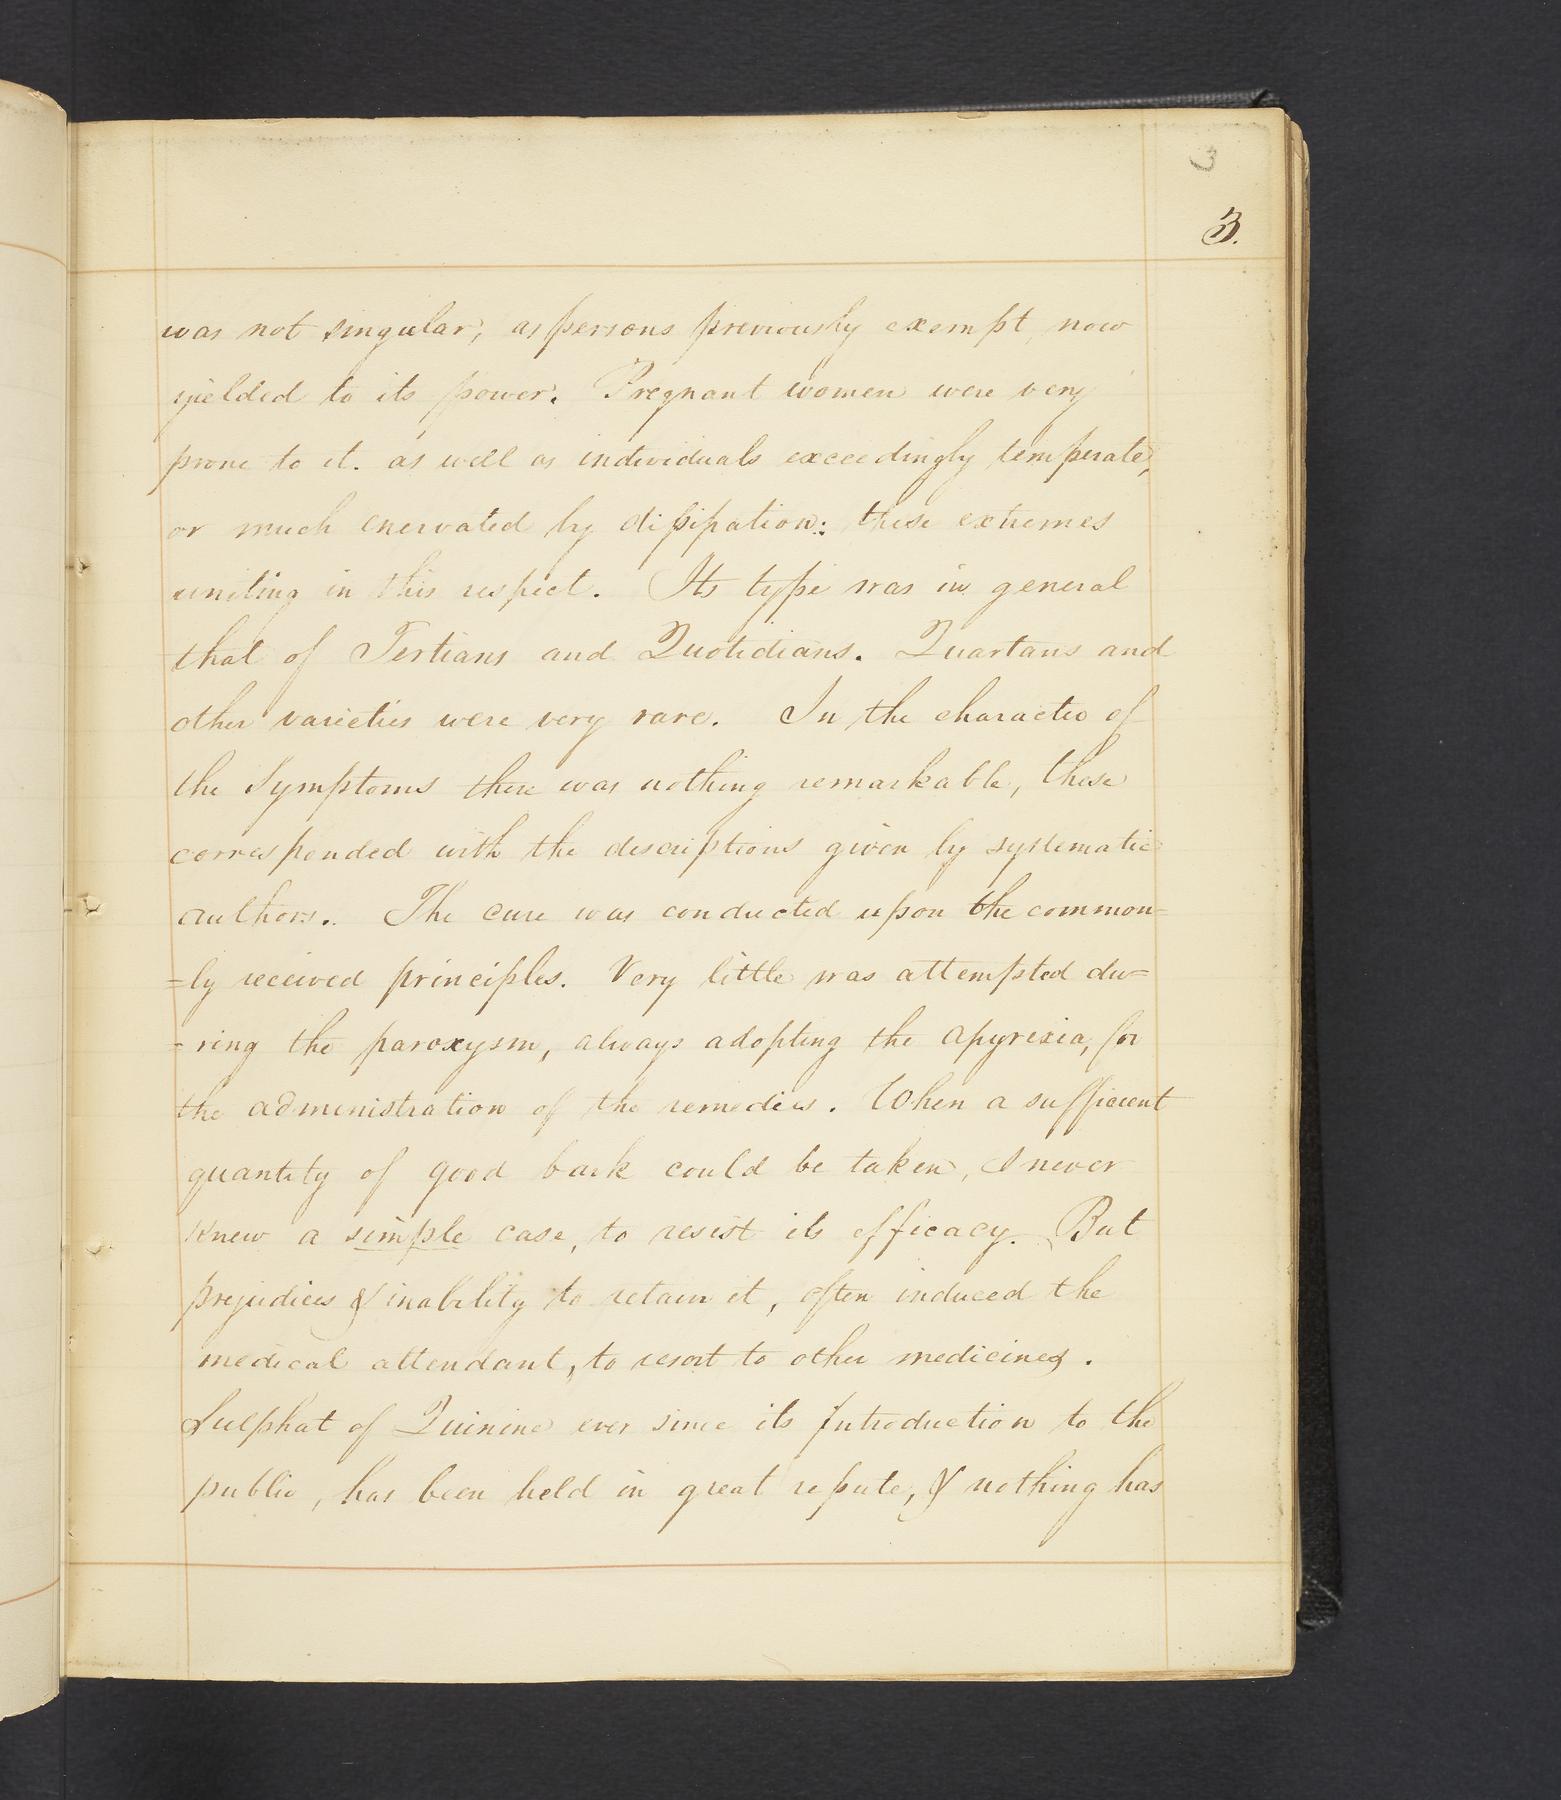 3
3.
was not singular, as persons previously exempt, now
yielded to its power. Pregnant women were very
prone to it. as well as individuals exceedingly temperate,
or much enervated by dissipation: these extremes
uniting in this respect. Its type was in general
that of Tertians and Quotidians. Quartans and
other varieties were very rare. In the character of
the Symptoms there was nothing remarkable, these
corresponded with the descriptions given by systematic
authors. The cure was conducted upon the common=
=ly received principles. Very little was attempted du=
=ring the paroxysm, always adopting the apyrexia, for
the administration of the remedies. When a sufficient
quantity of good bark could be taken, I never
knew a simple case, to resist its efficacy. But
prejudices & inability to retain it, often induced the
medical attendant, to resort to other medicines.
Sulphat of Quinine ever since its Introduction to the
public, has been held in great repute, & nothing has